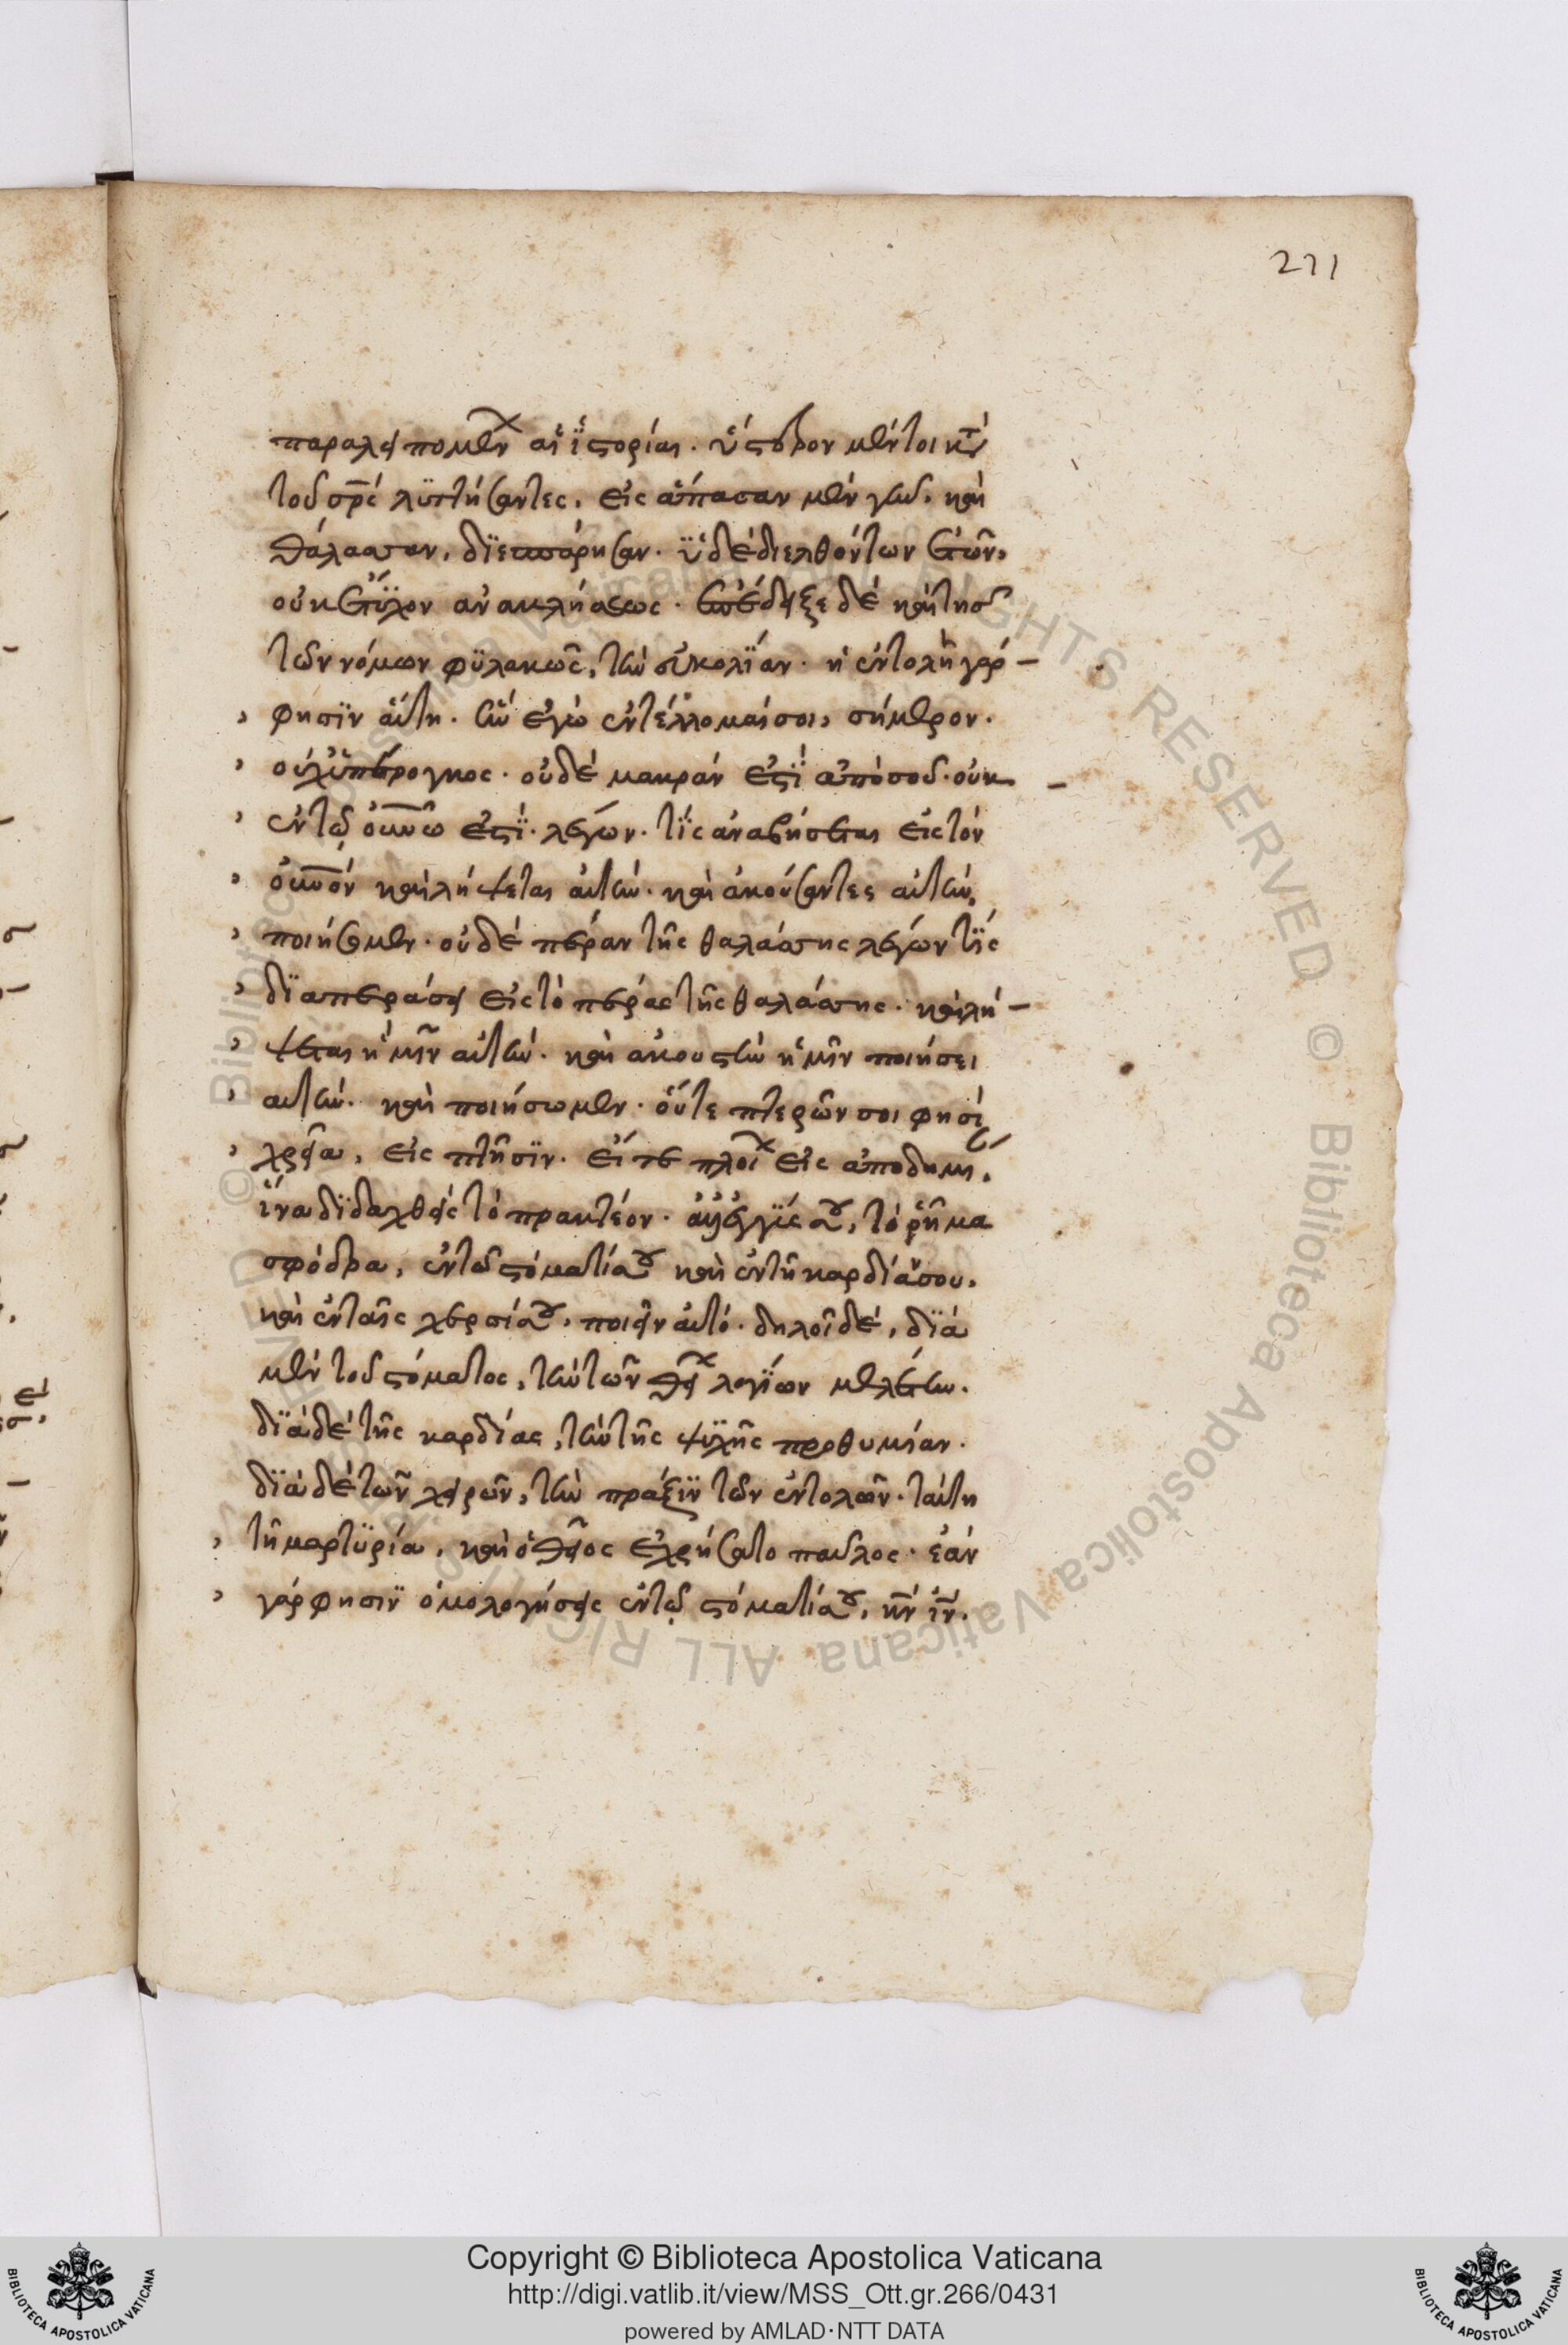 271
παραλειπομένων αἱ ἱστορίαι. ὕστερον μέντοι κατὰ
τοῦ σρς λυττήσαντες, εἰς ἅπασαν μὲν γῆν, καὶ
θάλασσαν, διεσπάρησαν. ϋ δὲ διελθόντων ἐτῶν,
οὐκ ἔτυχον ἀνακλήσεως. ἐπέδειξε δὲ καὶ τῆς
τῶν νόμων φυλακῆς, τὴν εὐκολίαν. ἡ ἐντολὴ γάρ
φησιν αὕτη. ἣν ἐγὼ ἐντέλλομαί σοι, σήμερον.
οὐχ ὑπέρογκος. οὐδὲ μακράν ἐστι ἀπὸ σοῦ. οὐκ
ἐν τῷ οὐνῶ ἐστι. λέγων. τίς ἀναβήσεται εἰς τὸν
οὐνὸν καὶ λήψεται αὐτήν. καὶ ἀκούσαντες αὐτήν,
ποιήσομεν. οὐδὲ πέραν τῆς θαλάσσης λέγων τίς
διαπεράσει εἰς τὸ πέρας τῆς θαλάσσης. καὶ λή
ψεται ἡμῖν αὐτήν. καὶ ἀκουστὴν ἡμῖν ποιήσει
αὐτήν. καὶ ποιήσωμεν. οὔτε πτερῶν σοι φησί
χρεία, εἰς πτῆσιν. εἴτε πλοίων εἰς ἀποδημίαν,
ἵνα διδαχθεὶς τὸ πρακτέον. ἀλλ' ἐγγύς σου, τὸ ῥῆμα
σφόδρα, ἐν τῶ στόματί σου καὶ ἐν τῆ καρδία σου.
καὶ ἐν ταῖς χερσί σου, ποιεῖν αὐτό. δηλοῖ δέ, διὰ
μὲν τοῦ στόματος, τὴν τῶν θείων λογίων μελέτην.
διὰ δὲ τῆς καρδίας, τὴν τῆς ψυχῆς προθυμίαν.
διὰ δὲ τῶν χειρῶν, τὴν πρᾶξιν τῶν ἐντολῶν. ταύτη
τῆ μαρτυρία, καὶ ὁ θεῖος ἐχρήσατο παῦλος. ἐὰν
γάρ φησιν ὁμολογήσεις ἐν τῷ στόματί σου, κν ιν.
Copyright © Biblioteca Apostolica Vaticana
http://digi.vatlib.it/view/MSS_Ott.gr.266/0431
powered by AMLAD·NTT DATA